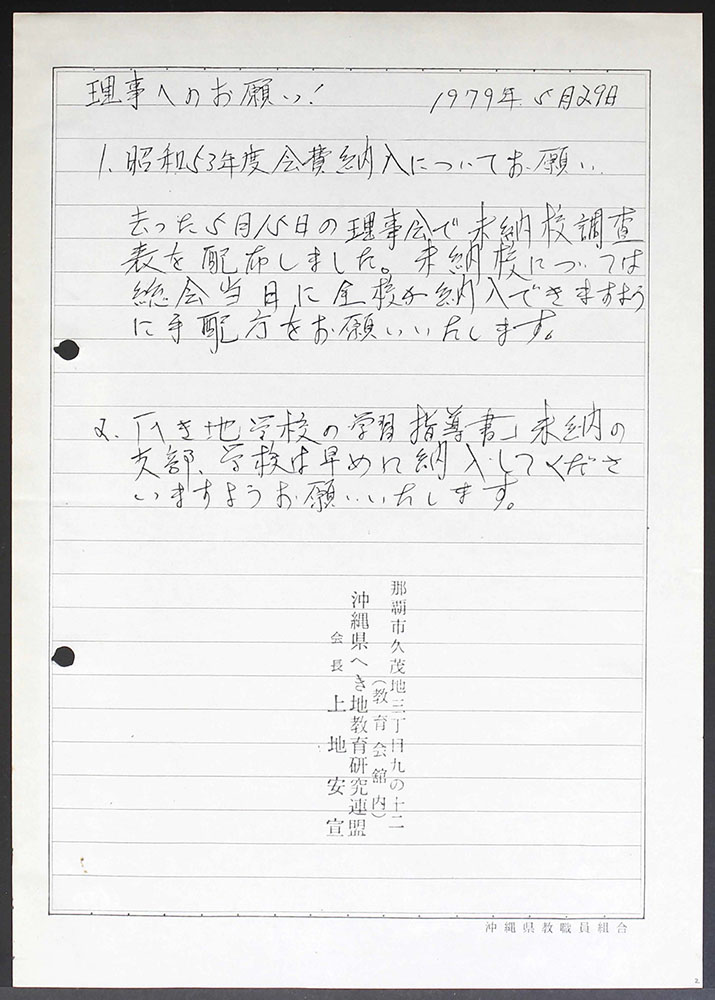 理事へのお願い!
1979年 5月29日
1. 昭和53年度会費納入についてお願い
去った5月15日の理事会で未納校調査
表を配布しました。未納校については
総会当日に全校が納入できますよう
に手配方をお願いいたします。
2. 「へき地学校の学習指導書」未納の
支部、学校は早めに納入してくださ
いますようお願いいたします。
那覇市久茂地三丁目九の十二
(教育会館内)
沖縄県へき地教育研究連盟
会長 上地安宣
沖縄県教職員組合
2